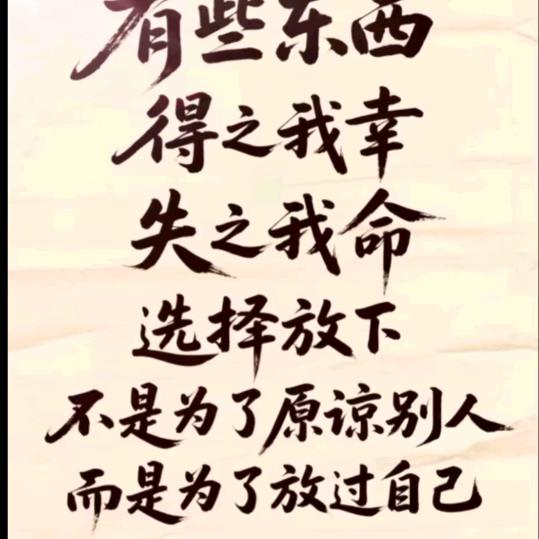 有些东西
得之我幸
失之我命
选择放下
不是为了原谅别人
而是为了放过自己